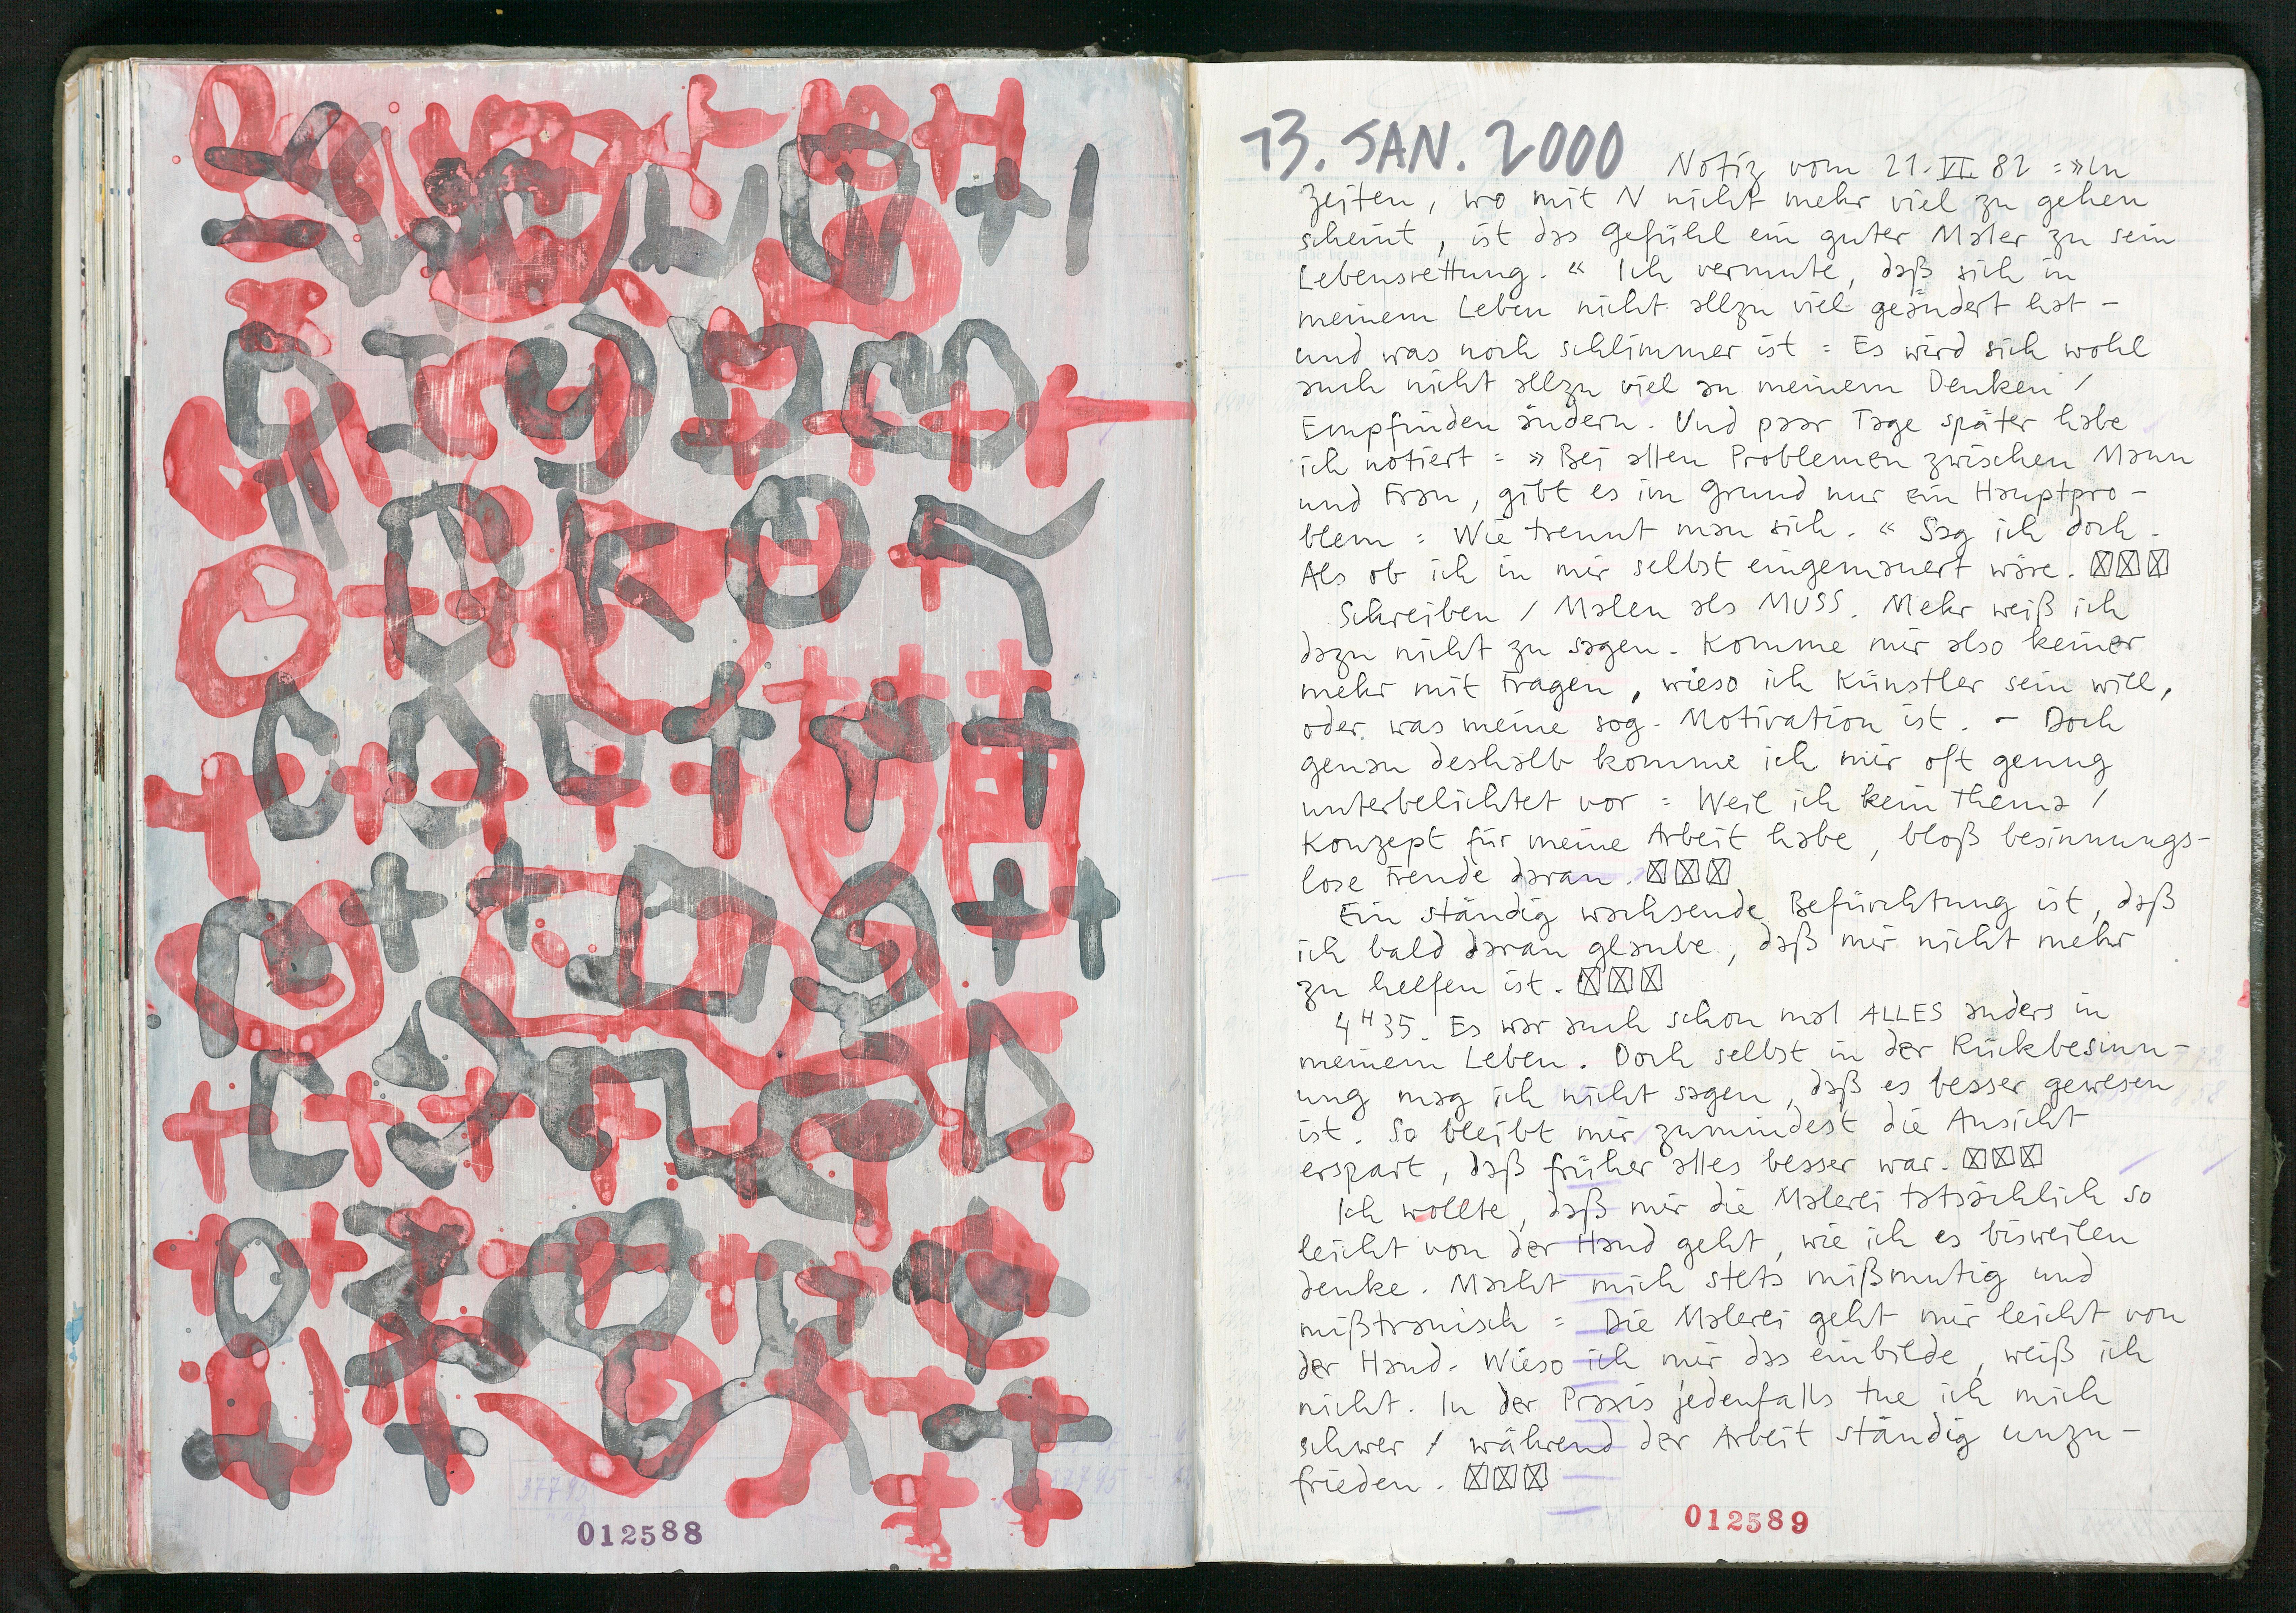 012588
13. JAN. 2000
Notiz vom 21. VI. 82 : »In
Zeiten, wo mit N nicht mehr viel zu gehen
scheint, ist das Gefühl ein guter Maler zu sein
Lebensrettung. « Ich vermute, daß sich in
meinem Leben nicht allzu viel geändert hat -
und was noch schlimmer ist : Es wird sich wohl
auch nicht allzu viel an meinem Denken /
Empfinden ändern. Und paar Tage später habe
ich notiert : » Bei allen Problemen zwischen Mann
und Frau, gibt es im Grund nur ein Hauptpro-
blem : Wie trennt man sich. « Sag ich doch.
Als ob ich in mir selbst eingemauert wäre.
Schreiben / Malen als MUSS. Mehr weiß ich
dazu nicht zu sagen. Komme mir also keiner
mehr mit Fragen, wieso ich Künstler sein will,
oder was meine sog. Motivation ist. - Doch
genau deshalb komme ich mir oft genug
unterbelichtet vor : Weil ich kein Thema /
Konzept für meine Arbeit habe, bloß besinnungs-
lose Freude daran.
Ein ständig wachsende Befürchtung ist, daß
ich bald daran glaube, daß mir nicht mehr
zu helfen ist.
4 H 35. Es war auch schon mal ALLES anders in
meinem Leben. Doch selbst in der Rückbesinn-
ung mag ich nicht sagen, daß es besser gewesen
ist. So bleibt mir zumindest die Ansicht
erspart, daß früher alles besser war.
Ich wollte, daß mir die Malerei tatsächlich so
leicht von der Hand geht, wie ich es bisweilen
denke. Macht mich stets mißmutig und
mißtrauisch : Die Malerei geht mir leicht von
der Hand. Wieso ich mir das einbilde, weiß ich
nicht. In der Praxis jedenfalls tue ich mich
schwer / während der Arbeit ständig unzu-
frieden.
012589